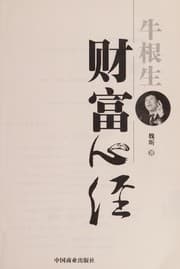 牛根生
财富心经
魏昕 著
中国商业出版社